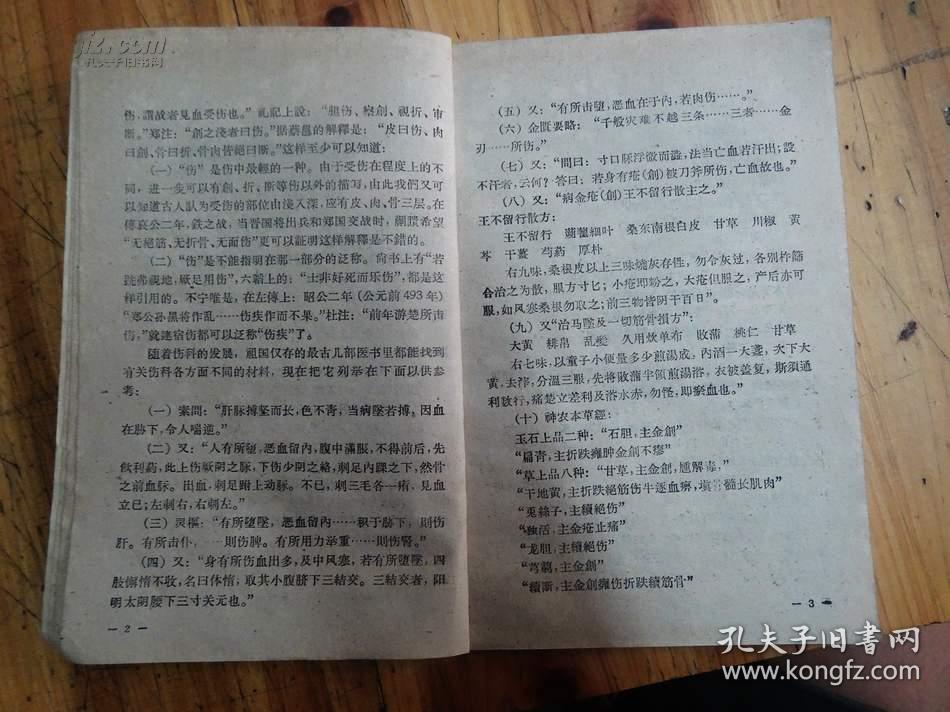 伤，謂故者見血受伤也。”礼記上說：“瞻伤、察創、視折、审
断。”郑注：“創之淺者曰伤。”据蔡邕的解釋是：“皮曰伤、肉
曰創、骨曰折、骨肉皆絕曰断。”这样至少可以知道：
（一）“伤”是伤中最輕的一种。由于受伤在程度上的不
同，进一步可以有創、折、断等伤以外的描写，由此我們又可
以知道古人認为受伤的部位由淺入深，应有皮、肉、骨三层。在
傳哀公二年，鉄之战，当晋国将出兵和郑国交战时，蒯聵希望
“无絕筋、无折骨、无面伤”更可以証明这样解釋是不錯的。
（二）“伤”是不能指明在那一部分的泛称。尙书上有“若
跣弗視地，厥足用伤”，六韜上的：“士非好死而乐伤”，都是这
样引用的。不宁唯是，在左傳上：昭公二年（公元前493年）
“郑公孙黑将作乱……伤疾作而不果。”杜注：“前年游楚所击
伤，”就連宿伤都可以泛称“伤疾”了。
随着伤科的发展，祖国仅存的最古几部医书里都能找到
有关伤科各方面不同的材料，现在把它列举在下面以供参
考：
（一）素問：“肝脉搏坚而长，色不青，当病墜若搏，因血
在胁下，令人喘逆。”
（二）又：“人有所堕，恶血留內，腹中滿脹，不得前后，先
飲利葯，此上伤厥阴之脉，下伤少阴之絡，刺足內踝之下，然骨
之前血脉。出血，刺足跗上动脉。不已，刺三毛各一痏，見血
立已；左刺右，右刺左。”
（三）灵樞：“有所堕墜，恶血留內……积于胁下，則伤
肝。有所击仆，……則伤脾。有所用力举重……則伤腎。”
（四）又：“身有所伤血出多，及中风寒，若有所堕墜，四
肢懈惰不收，名曰体惰，取其小腹脐下三結交。三結交者，阳
明太阴脐下三寸关元也。”
— 2 —
（五）又：“有所击堕，恶血在于內，若肉伤……。”
（六）金匱要略：“千般灾难不越三条……三者……金
刃……所伤。”
（七）又：“問曰：寸口脉浮微而澁，法当亡血若汗出；設
不汗者，云何？答曰：若身有疮(創)被刀斧所伤，亡血故也。”
（八）又：“病金疮(創)王不留行散主之。”
王不留行散方：
王不留行 蒴藋細叶 桑东南根白皮 甘草 川椒 黄
芩 干薑 芍葯 厚朴
右九味，桑根皮以上三味燒灰存性，勿令灰过，各別杵篩
合治之为散，服方寸匕；小疮即粉之，大疮但服之，产后亦可
服，如风寒桑根勿取之；前三物皆阴干百日”。
（九）又“治马墜及一切筋骨損方”：
大黄 緋帛 乱髮 久用炊单布 敗蒲 桃仁 甘草
右七味，以童子小便量多少煎湯成，內酒一大盞，次下大
黄，去滓，分溫三服，先将敗蒲半領煎湯浴，衣被盖复，斯須通
利数行，痛楚立差利及浴水赤，勿怪，即瘀血也。”
（十）神农本草經：
玉石上品二种：“石胆，主金創”
“扁青，主折跌雍肿金創不瘳”
“草上品八种：“甘草，主金創，尰解毒，”
“干地黄，主折跌絕筋伤牛逐血痹，塡骨髓长肌肉”
“兎絲子，主續絕伤”
“独活，主金疮止痛”
“龙胆，主續絕伤”
“芎藭，主金創”
“續断，主金創雍伤折跌續筋骨”
— 3 —
孔夫子旧书网
孔夫子旧书网
www.kongfz.com